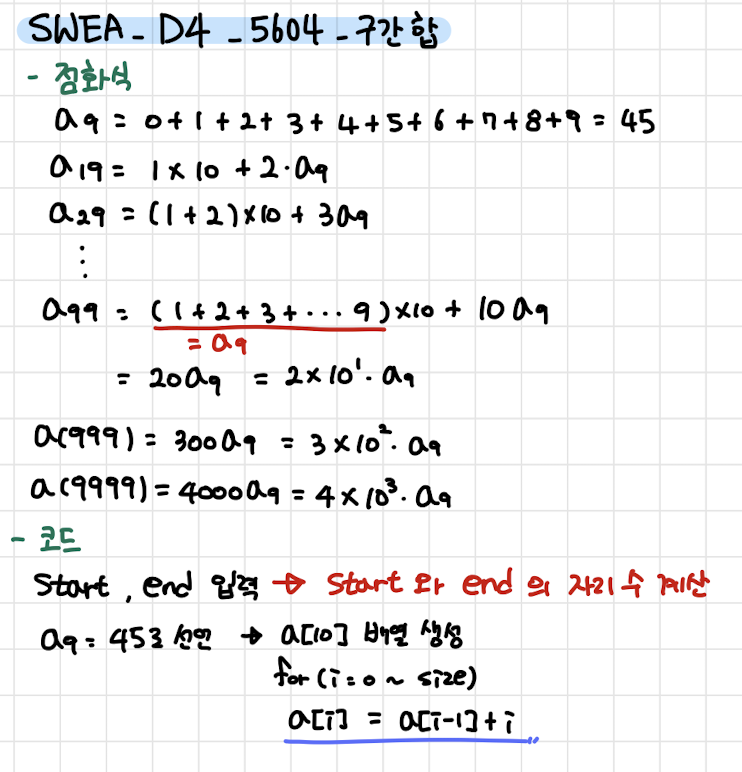 SWEA - D4 - 5604 - 구간합
- 점화식
a9 = 0+1+2+3+4+5+6+7+8+9 = 45
a19 = 1×10 + 2·a9
a29 = (1+2)×10 + 3a9
⋮
a99 = (1+2+3+··· 9)×10 + 10a9
= a9
= 20a9 = 2×10¹· a9
a(999) = 300a9 = 3×10²· a9
a(9999) = 4000a9 = 4×10³· a9
- 코드
Start, end 입력 → Start와 end의 자리수 계산
a9 = 45로 선언 → a[10] 배열 생성
for(i=0 ~ size)
a[i] = a[i-1]+i